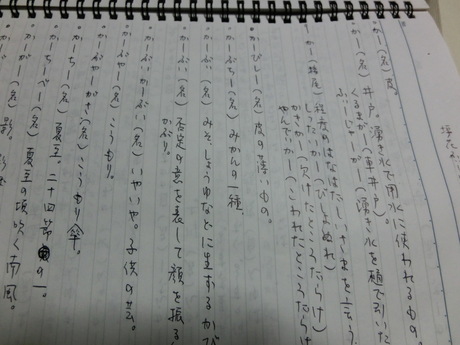 か(名) 皮。
かー(名) 井戸。湧き水で用水に使われるもの。
くるまがー(車井戸)。
ふぃーじゃーがー(湧き水を樋で引いた
ーかー(接尾) 程度のはなはだしいさまを言う。
しぷたいかー(びしょぬれ)
かきかー(欠けたところだらけ)
やんでぃかー(こわれたところだらけ
かーびしー(名) 皮の薄いもの。
かーぶちー(名) みかんの一種。
かーぶい(名) みそ、しょうゆなどに生ずるかび
かーぶい(名) 否定の意を表して頭を振る
かぶり。
かーぶいかーぶい(名) いやいや。子供の芸。
かーぶやー(名) こうもり。
かーぶやーがさ(名) こうもり傘。
かーちー(名) 夏至。二十四節の一。
かーちーべー(名) 夏至の頃吹く南風。
かーがー(名) 影。